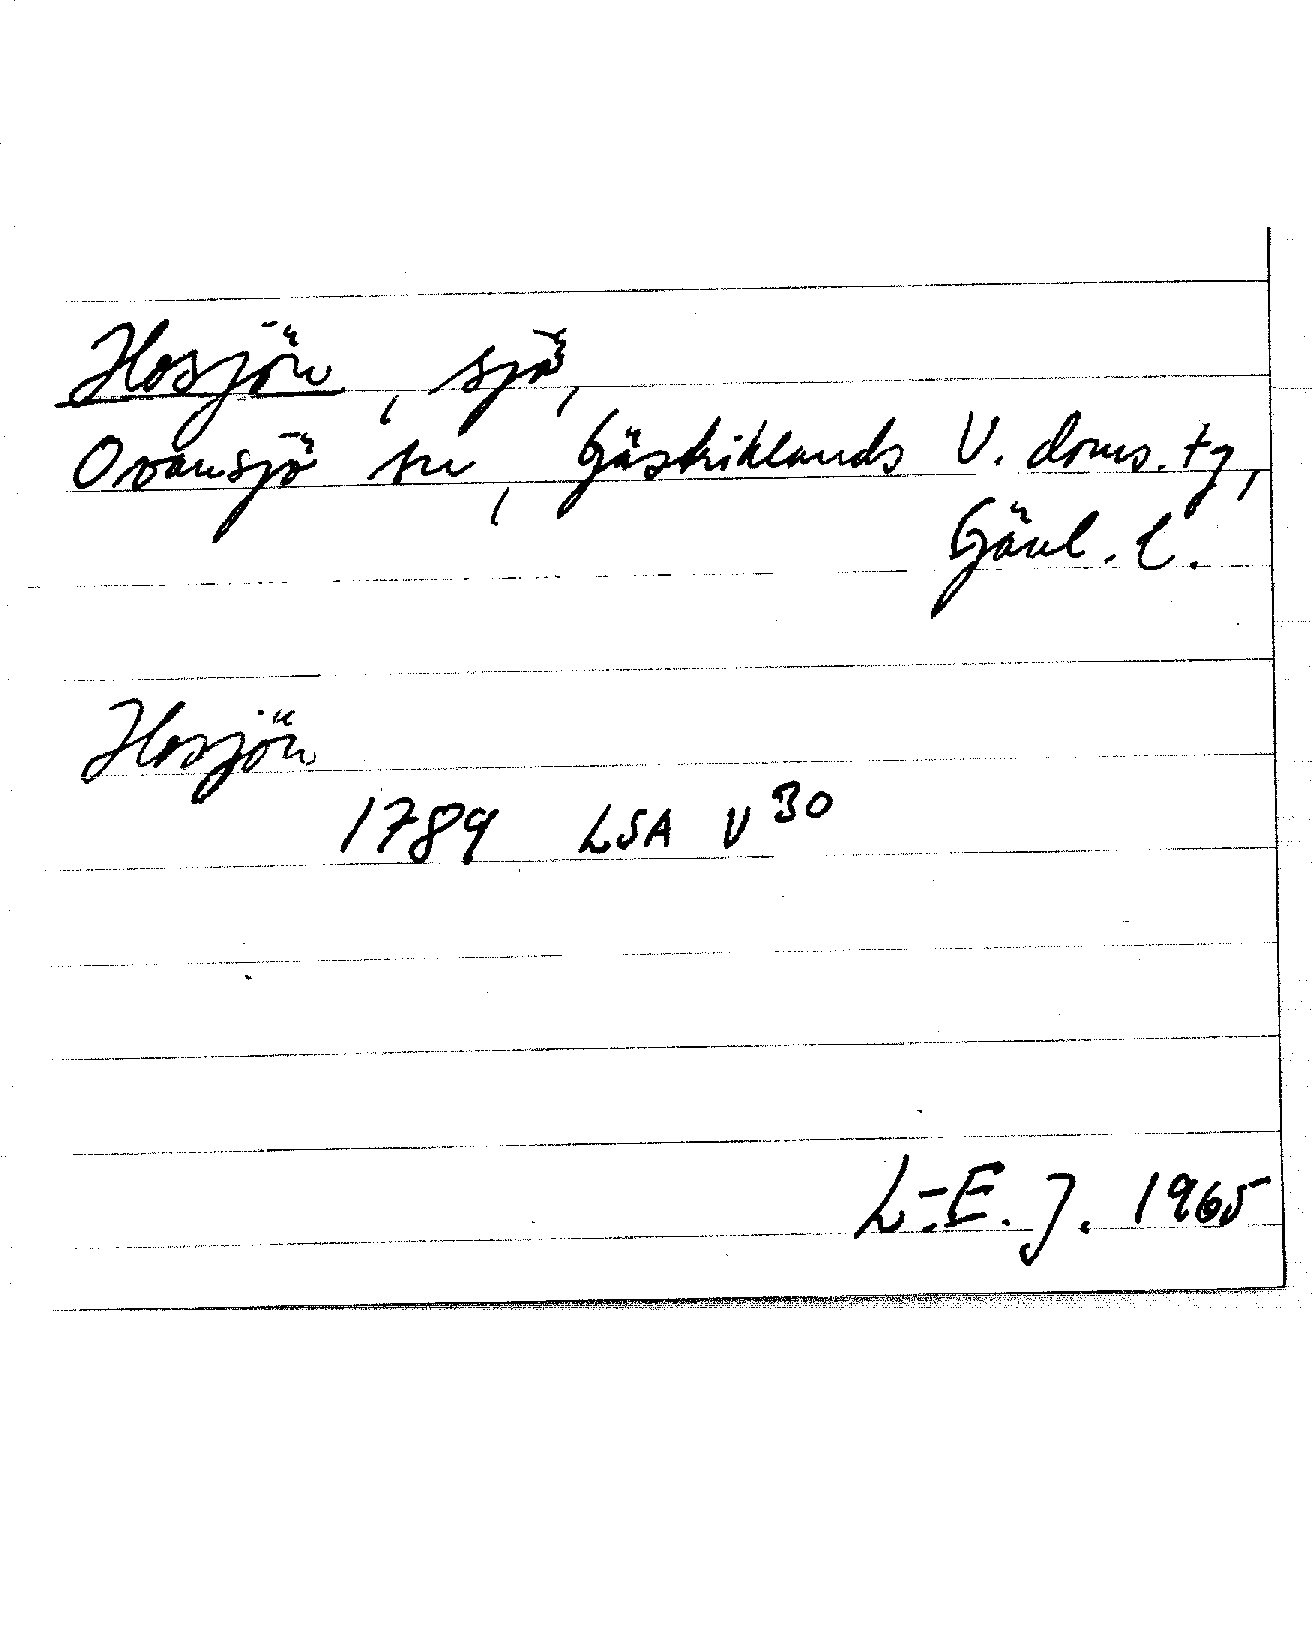 Hosjön, sjö,
Ovansjö sn, Gästriklands V. doms. tg,
Gävl. l.
Hosjön
1789 LSA V 30
L-E. J. 1965